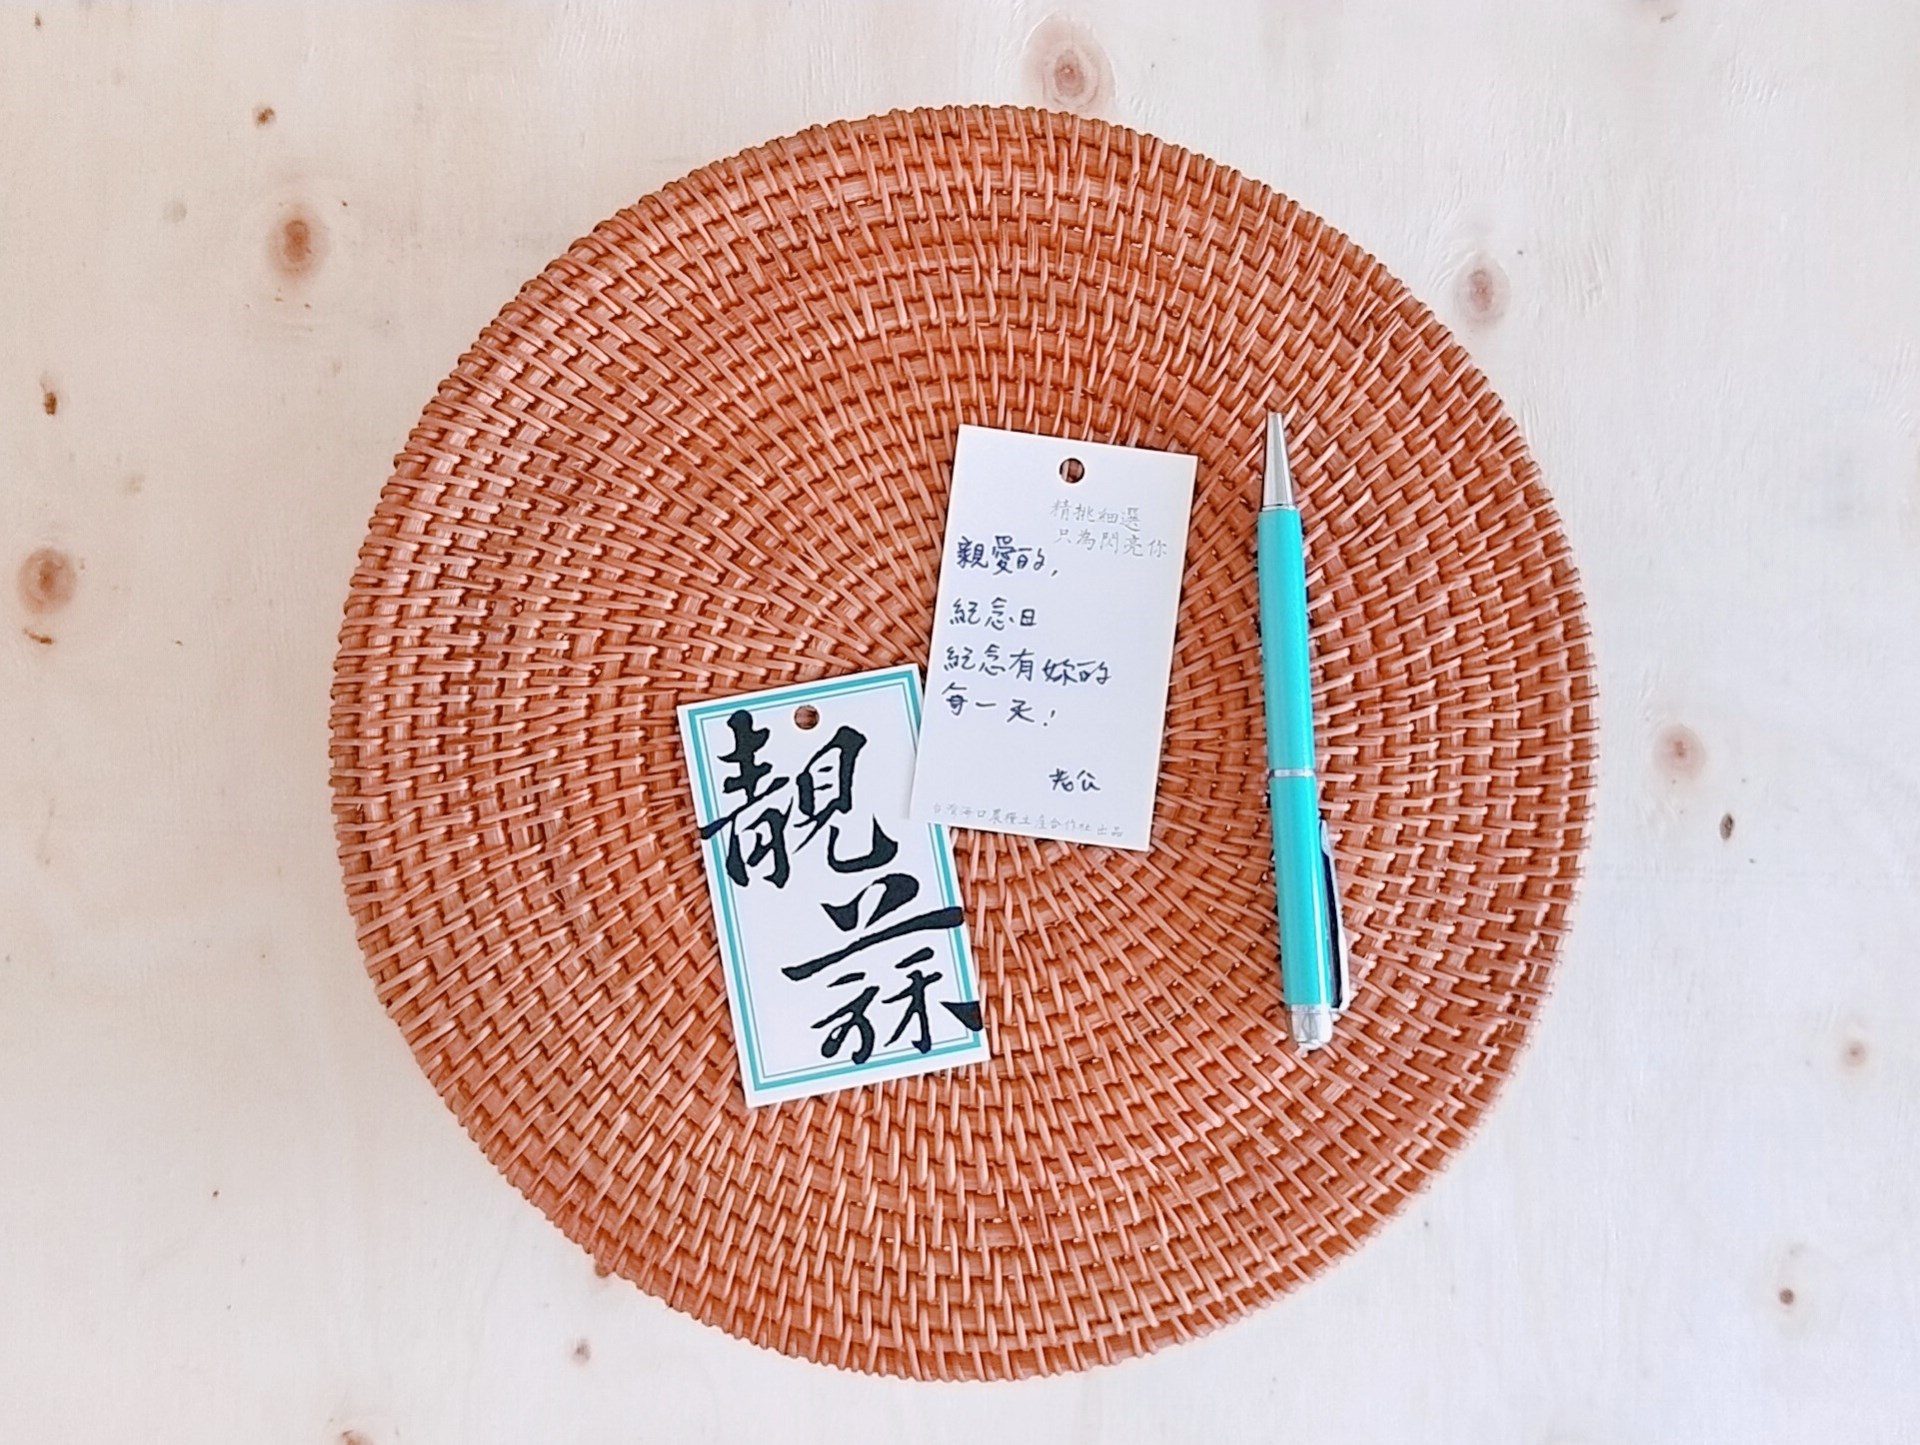 精挑細選
只為閃亮你
親愛的,
紀念日
紀念有妳的
每一天!
老公
台灣海口農糧土産合作社出品
靚